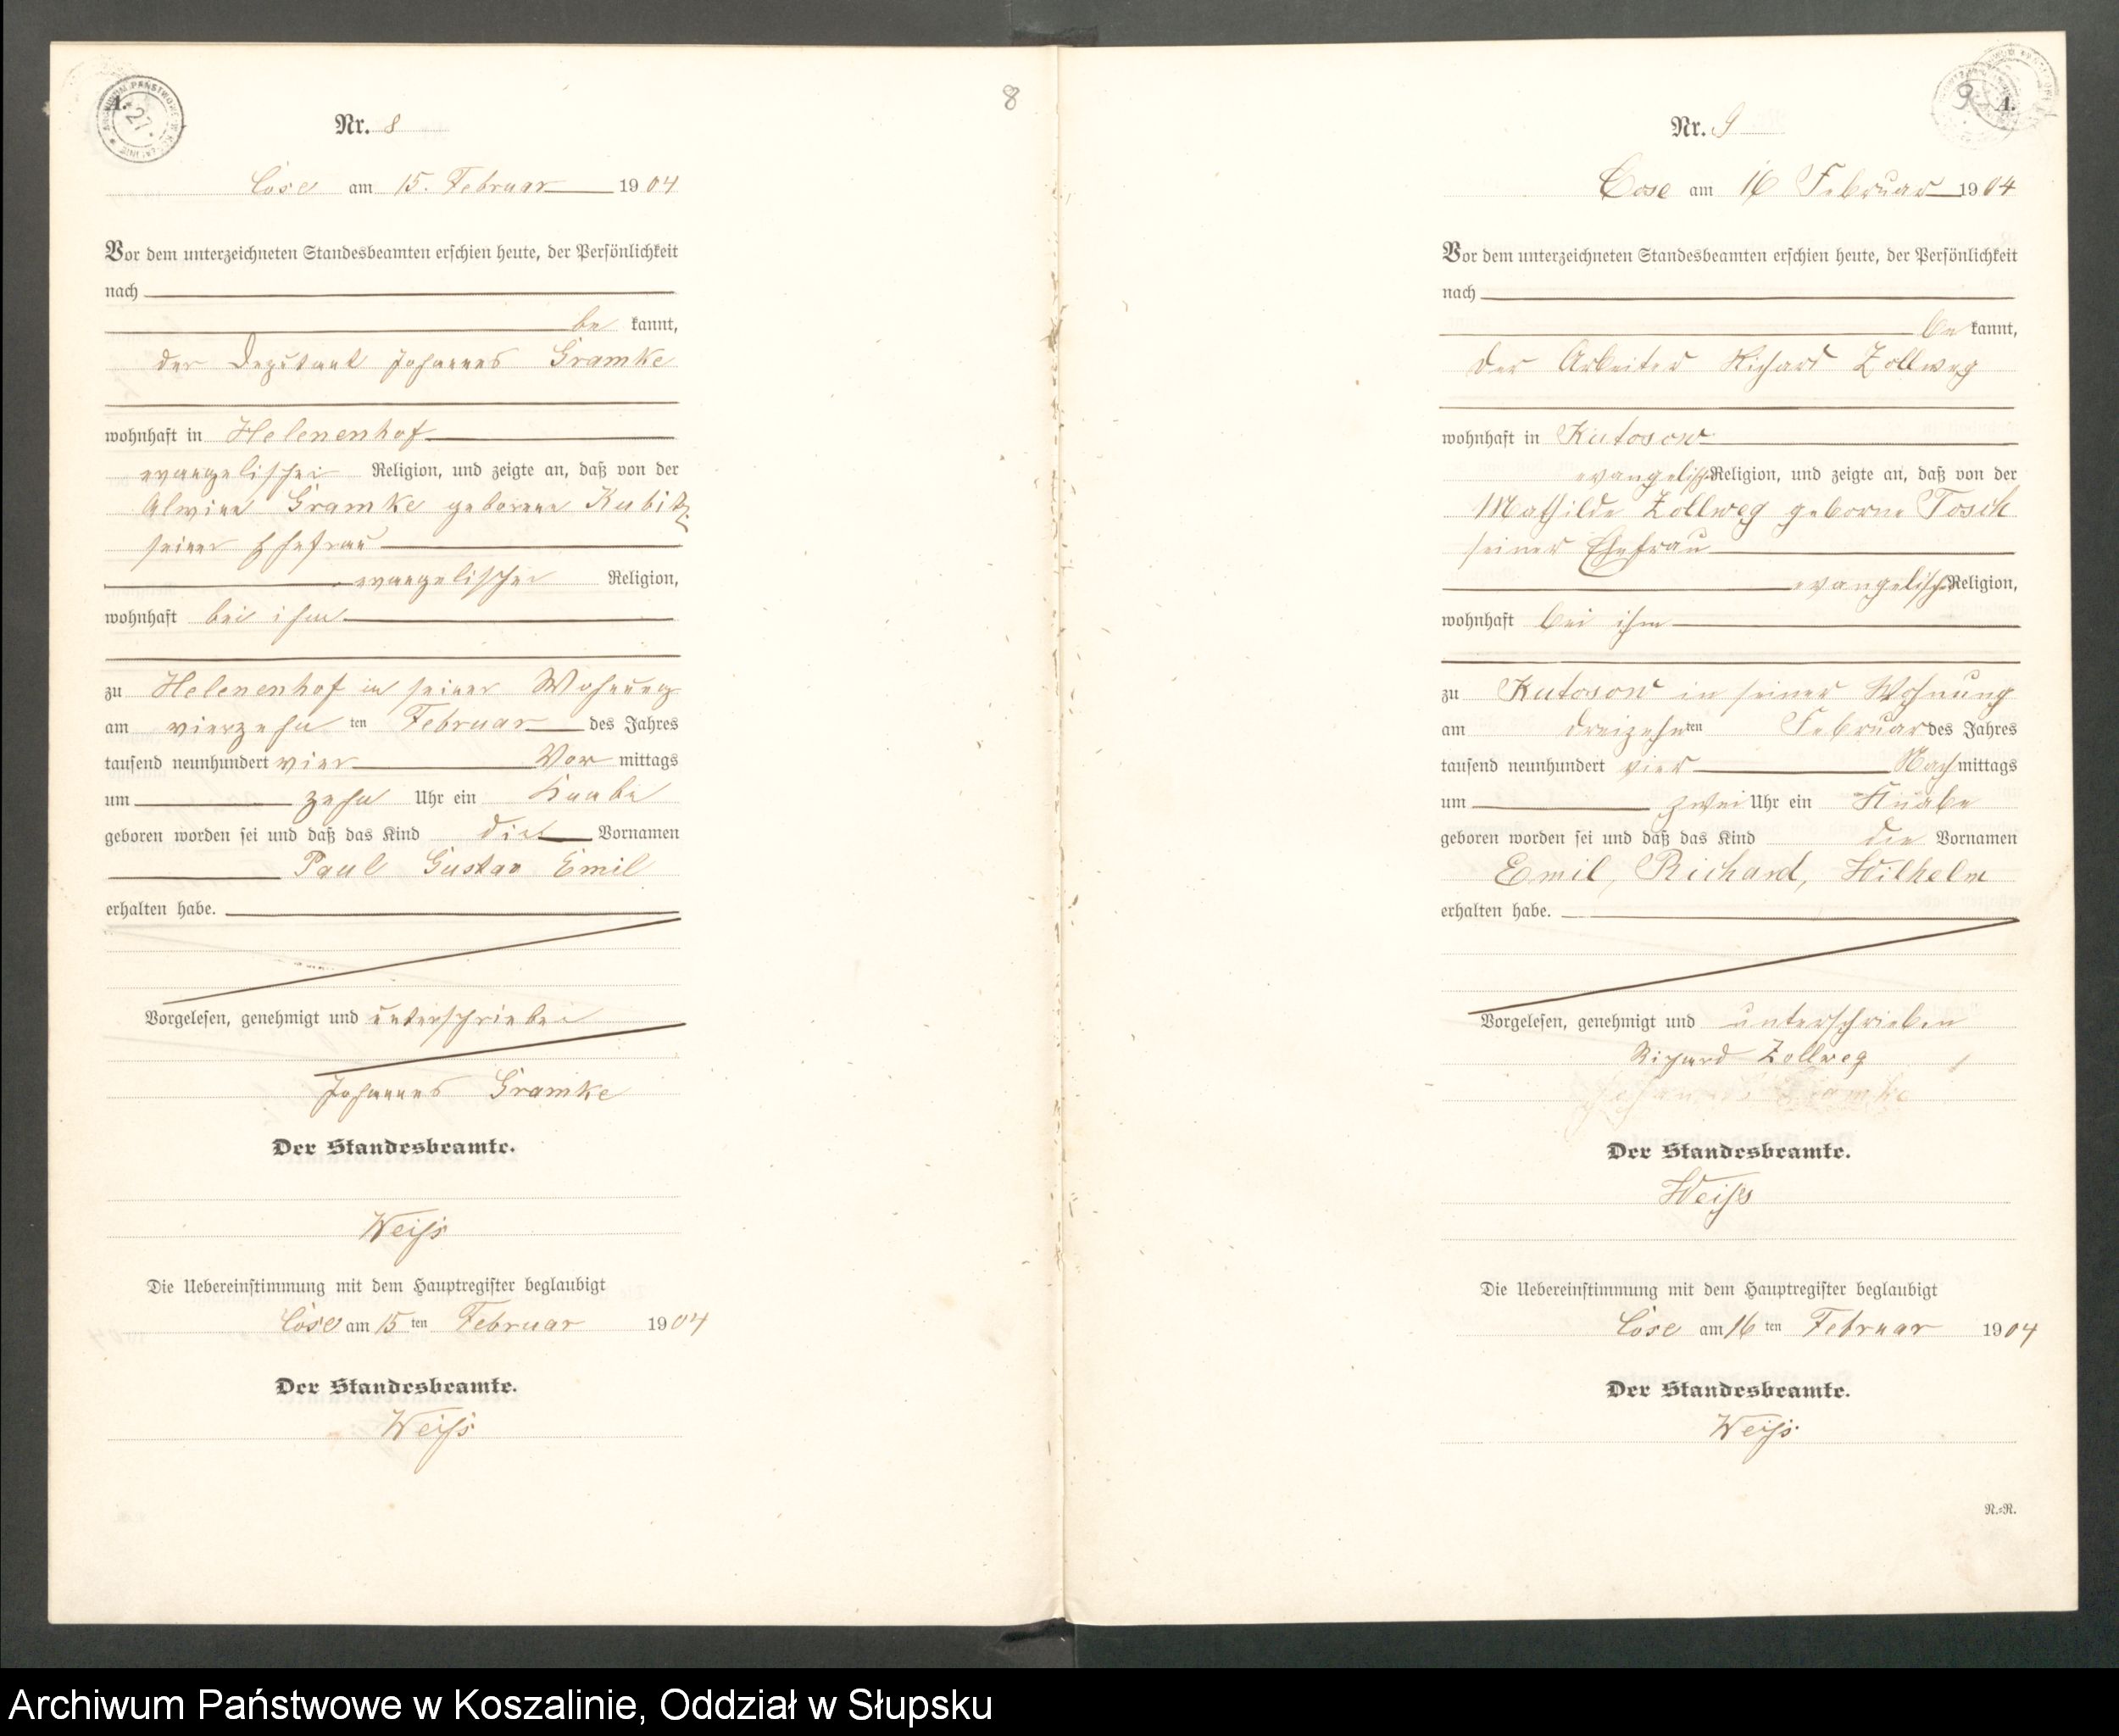 A.
ARCHIWUM PAŃSTWOWE W KOSZALINIE
27
Nr. 8
8
Cose am 15. Februar 1904
Vor dem unterzeichneten Standesbeamten erschien heute, der Persönlichkeit
nach
be kannt,
der Deputant Johannes Gramke
wohnhaft in Helenenhof
evangelischer Religion, und zeigte an, daß von der
Alwine Gramke geborene Kubitz
seiner Ehefrau
evangelischer Religion,
wohnhaft bei ihm
zu Helenenhof in seiner Wohnung
am vierzehn ten Februar des Jahres
tausend neunhundert vier Vor mittags
um zehn Uhr ein Knabe
geboren worden sei und daß das Kind die Vornamen
Paul Gustav Emil
erhalten habe.
Vorgelesen, genehmigt und unterschrieben
Johannes Gramke
Der Standesbeamte.
Weiß
Die Uebereinstimmung mit dem Hauptregister beglaubigt
Cose am 15 ten Februar 1904
Der Standesbeamte.
Weiß
9
A.
Nr. 9
Cose am 16 Februar 1904
Vor dem unterzeichneten Standesbeamten erschien heute, der Persönlichkeit
nach
be kannt,
der Arbeiter Richard Zollweg
wohnhaft in Kutosow
evangelisch Religion, und zeigte an, daß von der
Mathilde Zollweg geborne Tosch
seiner Ehefrau
evangelisch Religion,
wohnhaft bei ihm
zu Kutosow in seiner Wohnung
am dreizehnten Februar des Jahres
tausend neunhundert vier Nachmittags
um zwei Uhr ein Knabe
geboren worden sei und daß das Kind die Vornamen
Emil, Richard, Wilhelm
erhalten habe.
Vorgelesen, genehmigt und unterschrieben
Richard Zollweg
Der Standesbeamte.
Weiß
Die Uebereinstimmung mit dem Hauptregister beglaubigt
Cose am 16 ten Februar 1904
Der Standesbeamte.
Weiß
N.=R.
Archiwum Państwowe w Koszalinie, Oddział w Słupsku